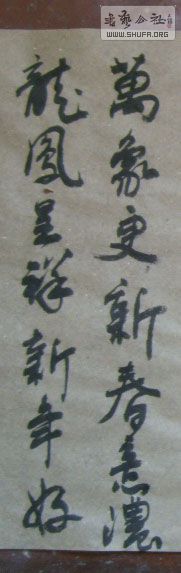 書藝公社
WWW.SHUFA.ORG
萬象更新春意濃
龍鳳呈祥新年好